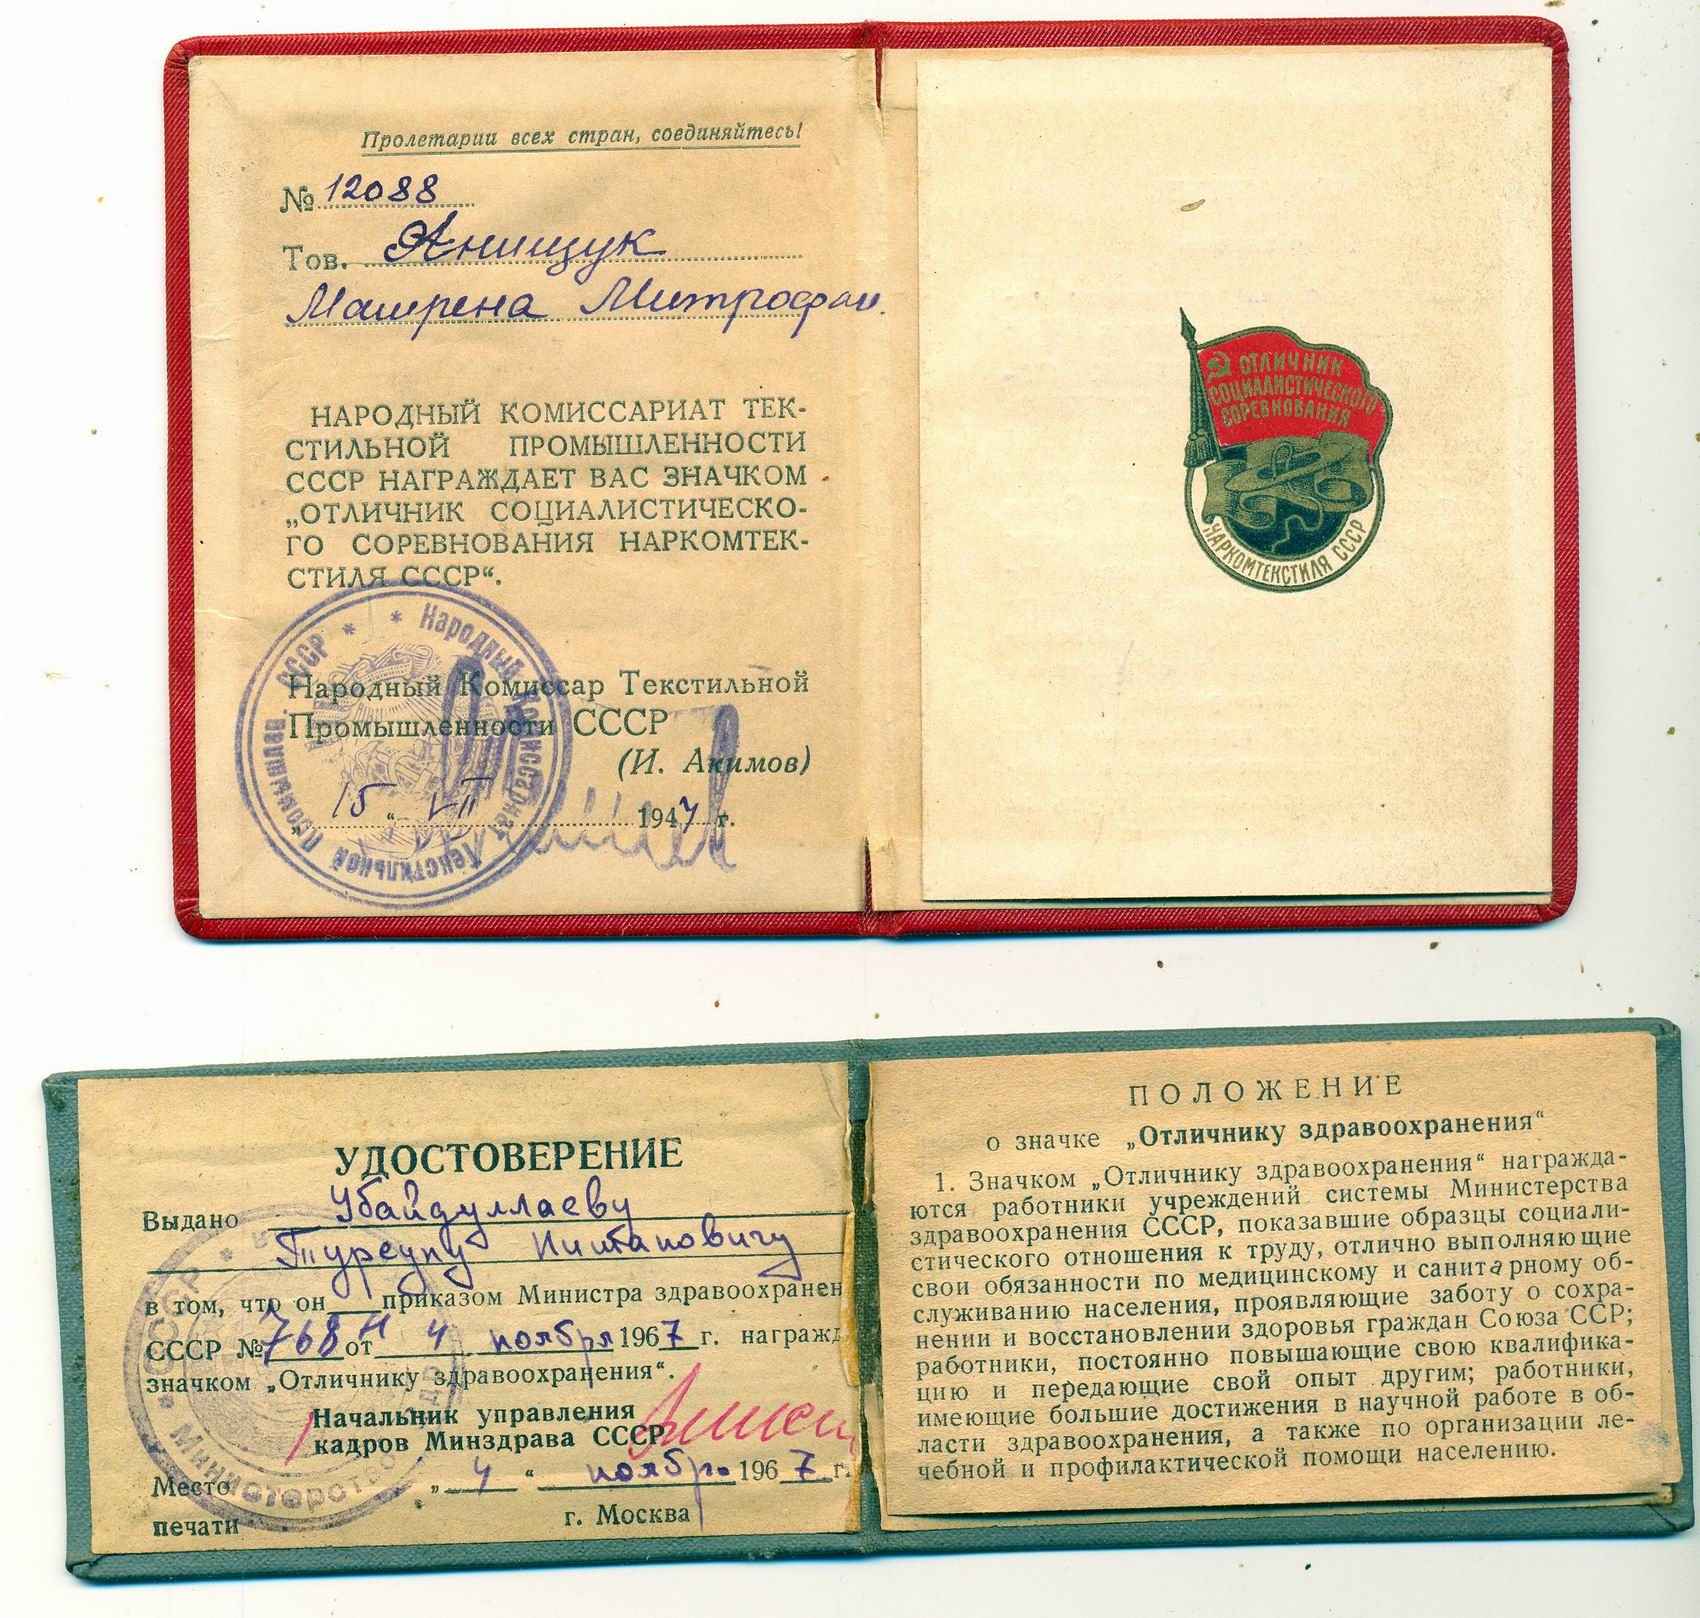 Пролетарии всех стран, соединяйтесь!
№ 12088
Тов. Анищук
Матрена Митрофан.
НАРОДНЫЙ КОМИССАРИАТ ТЕК-
СТИЛЬНОЙ ПРОМЫШЛЕННОСТИ
СССР НАГРАЖДАЕТ ВАС ЗНАЧКОМ
„ОТЛИЧНИК СОЦИАЛИСТИЧЕСКО-
ГО СОРЕВНОВАНИЯ НАРКОМТЕК-
СТИЛЯ СССР“.
Народный Комиссар Текстильной
Промышленности СССР
(И. Акимов)
„15“ VII 1947 г.
Народный Комиссариат Текстильной Промышлен. СССР
ОТЛИЧНИК
СОЦИАЛИСТИЧЕСКОГО
СОРЕВНОВАНИЯ
НАРКОМТЕКСТИЛЯ СССР
УДОСТОВЕРЕНИЕ
Выдано Убайдуллаеву
Турсуну
в том, что он приказом Министра здравоохранен
СССР № 768 Н от 4 ноября 1967 г. награжд
значком „Отличнику здравоохранения“.
Начальник управления
кадров Минздрава СССР
Место „4“ ноября 1967 г.
печати г. Москва
ПОЛОЖЕНИЕ
о значке „Отличнику здравоохранения“
1. Значком „Отличнику здравоохранения“ награжда-
ются работники учреждений системы Министерства
здравоохранения СССР, показавшие образцы социали-
стического отношения к труду, отлично выполняющие
свои обязанности по медицинскому и санитарному об-
служиванию населения, проявляющие заботу о сохра-
нении и восстановлении здоровья граждан Союза ССР;
работники, постоянно повышающие свою квалифика-
цию и передающие свой опыт другим; работники,
имеющие большие достижения в научной работе в об-
ласти здравоохранения, а также по организации ле-
чебной и профилактической помощи населению.